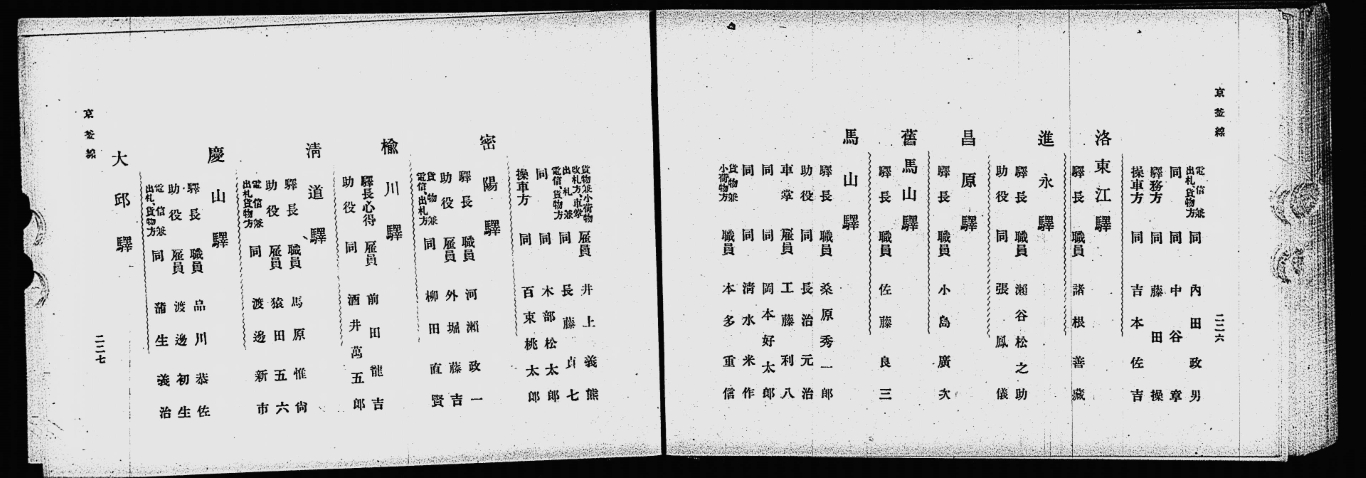 京釜線
二二六
電信兼出札、貨物方 同 內田政男
同 同 中谷章
驛務方 同 藤田操
操車方 同 吉本佐吉
洛東江驛
驛長 職員 諸根善藏
進永驛
驛長 雇員 瀨谷松之助
助役 同 張鳳儀
昌原驛
驛長 職員 小島廣次
舊馬山驛
驛長 職員 佐藤良三
馬山驛
驛長 職員 桑原秀一郎
助役 同 長治元治
車掌 雇員 工藤利八
同 同 岡本好太郎
同 同 淸水米作
貨物兼小荷物方 職員 本多重信
貨物兼小荷物 雇員 井上義熊
收札方、車掌
出札兼電信、貨物方 同 長藤貞七
同 同 木部松太郎
操車方 同 百東桃太郎
密陽驛
驛長 職員 河瀨政一
助役 雇員 外堀藤吉
貨物兼電信、出札方 同 柳田直賢
楡川驛
驛長心得 雇員 前田龍吉
助役 同 酒井萬五郎
淸道驛
驛長 職員 馬原惟尙
助役 雇員 猿田五六
電信兼出札貨物方 同 渡邊新市
慶山驛
驛長 職員 品川恭佐
助役 雇員 渡邊初生
電信兼出札、貨物方 同 蒲生義治
大邱驛
京釜線
二二七